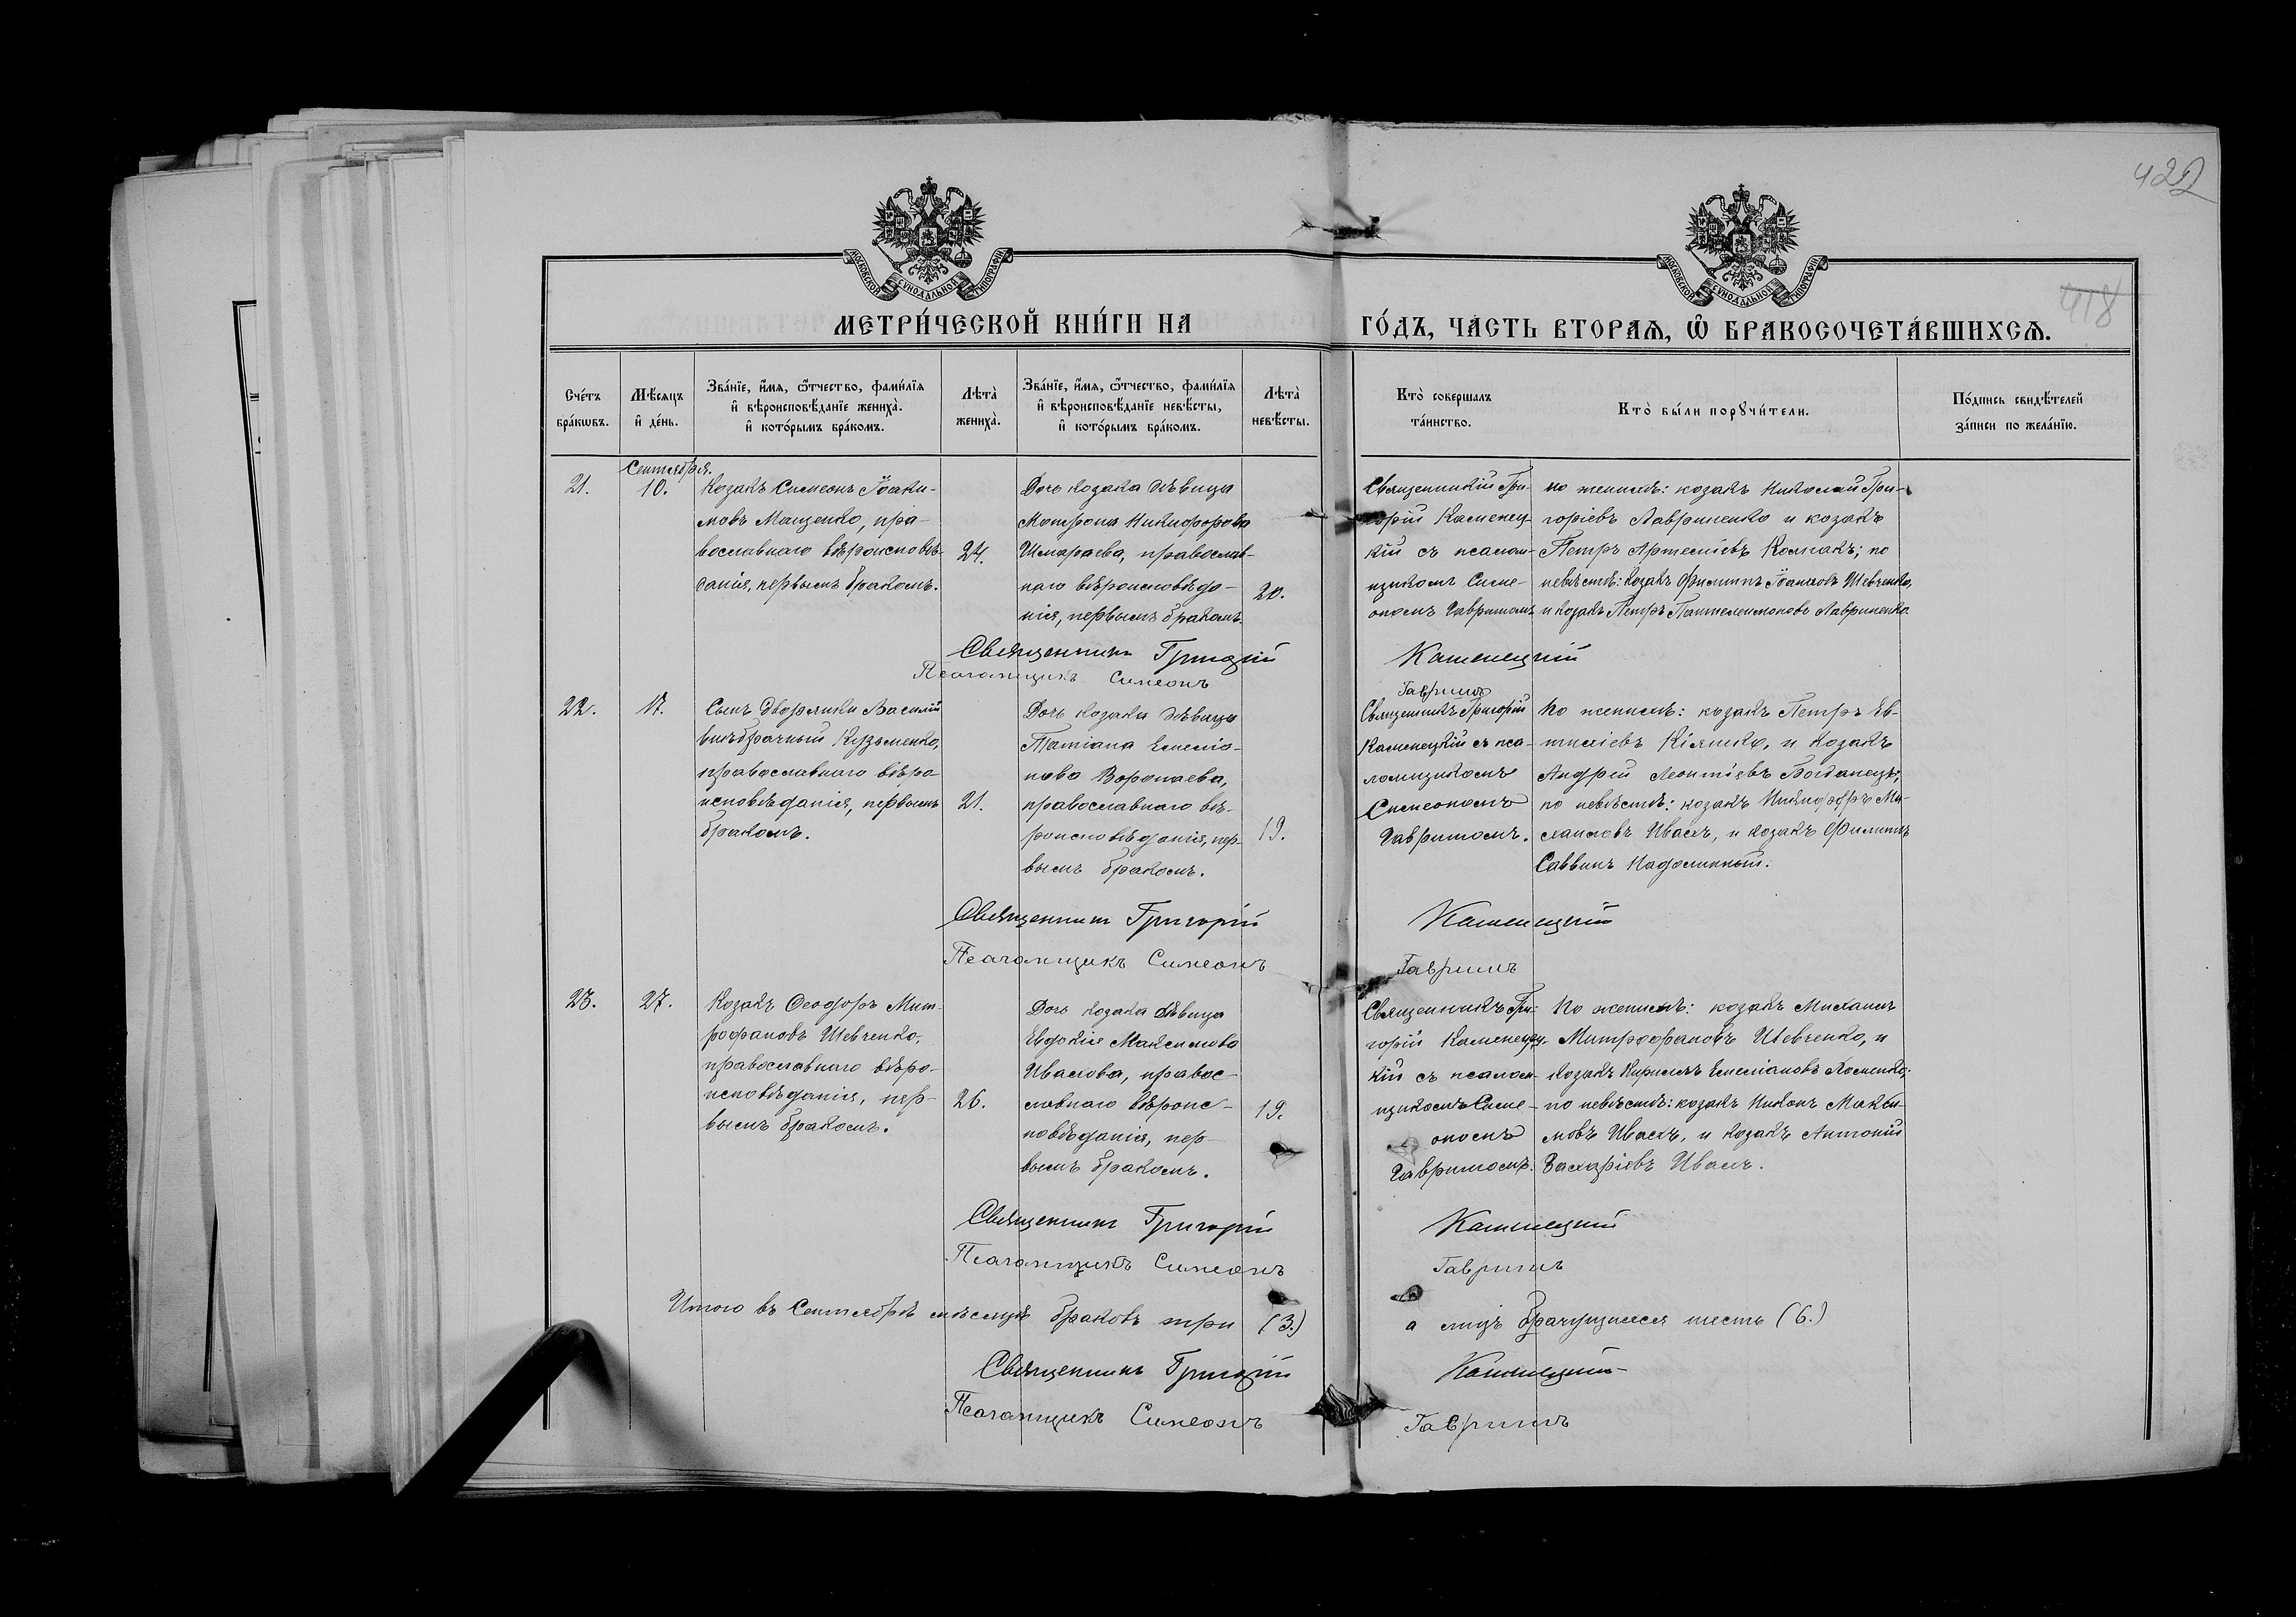 422
418
МОСКОВСКОЙ СѴНОДАЛЬНОЙ ТИПОГРАФІИ
МОСКОВСКОЙ СѴНОДАЛЬНОЙ ТИПОГРАФІИ
МЕТРИ́ЧЕСКОЙ КНИ́ГИ НА
ГО́ДЪ, ЧА́СТЬ ВТОРАѦ, Ѽ БРАКОСОЧЕТА́ВШИХСѦ.
Сче́тъ
бра́кѡвъ.
Мѣ́сяцъ
и҆ де́нь.
Зва́нїе, и҆́мя, ѻ҆́тчество, фами́лїя
и҆ вѣроисповѣ́данїе жениха̀.
и҆ кото́рымъ бра́комъ.
Лѣта̀
жениха̀.
Зва́нїе, и҆́мя, ѻ҆́тчество, фами́лїя
и҆ вѣроисповѣ́данїе невѣ́сты,
и҆ кото́рымъ бра́комъ.
Лѣта̀
невѣ́сты.
Кто̀ совершалъ
та́инство.
Кто̀ бы́ли порꙋчи́тели.
По́дпись свидѣ́телей
за́писи по жела́нїю.
Сентября.
21.
10.
Козакъ Симеонъ Іоаки-
мовъ Мащенко, пра-
вославнаго вѣроисповѣ-
данія, первымъ бракомъ.
24.
Дочь козака дѣвица
Матрона Никифорова
Шмараева, православ-
наго вѣроисповѣда-
нія, первымъ бракомъ.
20.
Священникій Гри-
горій Каменец-
кій съ псалом-
щикомъ Симе-
ономъ Гавришомъ
по женихѣ: козакъ Николай Гри-
горіевъ Лавриненко и козакъ
Петръ Артеміевъ Колпакъ; по
невѣстѣ: козакъ Филиппъ Іоанновъ Шевченко,
и козакъ Петръ Пантелеимоновъ Лавриненко.
Священникъ Григорій Каменецкій
Псаломщикъ Симеонъ Гавришъ
22.
17.
Сынъ дворянки Василій
внѣбрачный Кузьменко,
православнаго вѣро-
исповѣданія, первымъ
бракомъ.
21.
Дочь козака дѣвица
Татіана Емеліа-
нова Воропаева,
православнаго вѣ-
роисповѣданія, пер-
вымъ бракомъ.
19.
Священникъ Григорій
Каменецкій съ пса-
ломщикомъ
Симеономъ
Гавришомъ.
По женихѣ: козакъ Петръ Ев-
Кіяшко, и козакъ
Андрей Леонтіевъ Богданецъ;
по невѣстѣ: козакъ Никифоръ Ми-
хаиловъ Иващъ, и козакъ Филиппъ
Саввинъ Надолинный.
Священникъ Григорій Каменецкій
Псаломщикъ Симеонъ Гавришъ
23.
27.
Козакъ Ѳеодоръ Мит-
рофановъ Шевченко,
православнаго вѣро-
исповѣданія, пер-
вымъ бракомъ.
26.
Дочь козака дѣвица
Евдокія Максимова
Ивахова, правос-
лавнаго вѣроис-
повѣданія, пер-
вымъ бракомъ.
19.
Священникъ Гри-
горій Каменец-
кій съ псалом-
щикомъ Симе-
ономъ
Гавришомъ.
По женихѣ: козакъ Михаилъ
Митрофановъ Шевченко, и
козакъ Кириллъ Емеліановъ Хоменко;
по невѣстѣ: козакъ Никонъ Макси-
мовъ Ивахъ, и козакъ Антоній
Захаріевъ Ивахъ.
Священникъ Григорій Каменецкій
Псаломщикъ Симеонъ Гавришъ
Итого въ Сентябрѣ мѣсяцѣ браковъ три (3.) а лицъ брачущихся шесть (6.)
Священникъ Григорій Каменецкій
Псаломщикъ Симеонъ Гавришъ